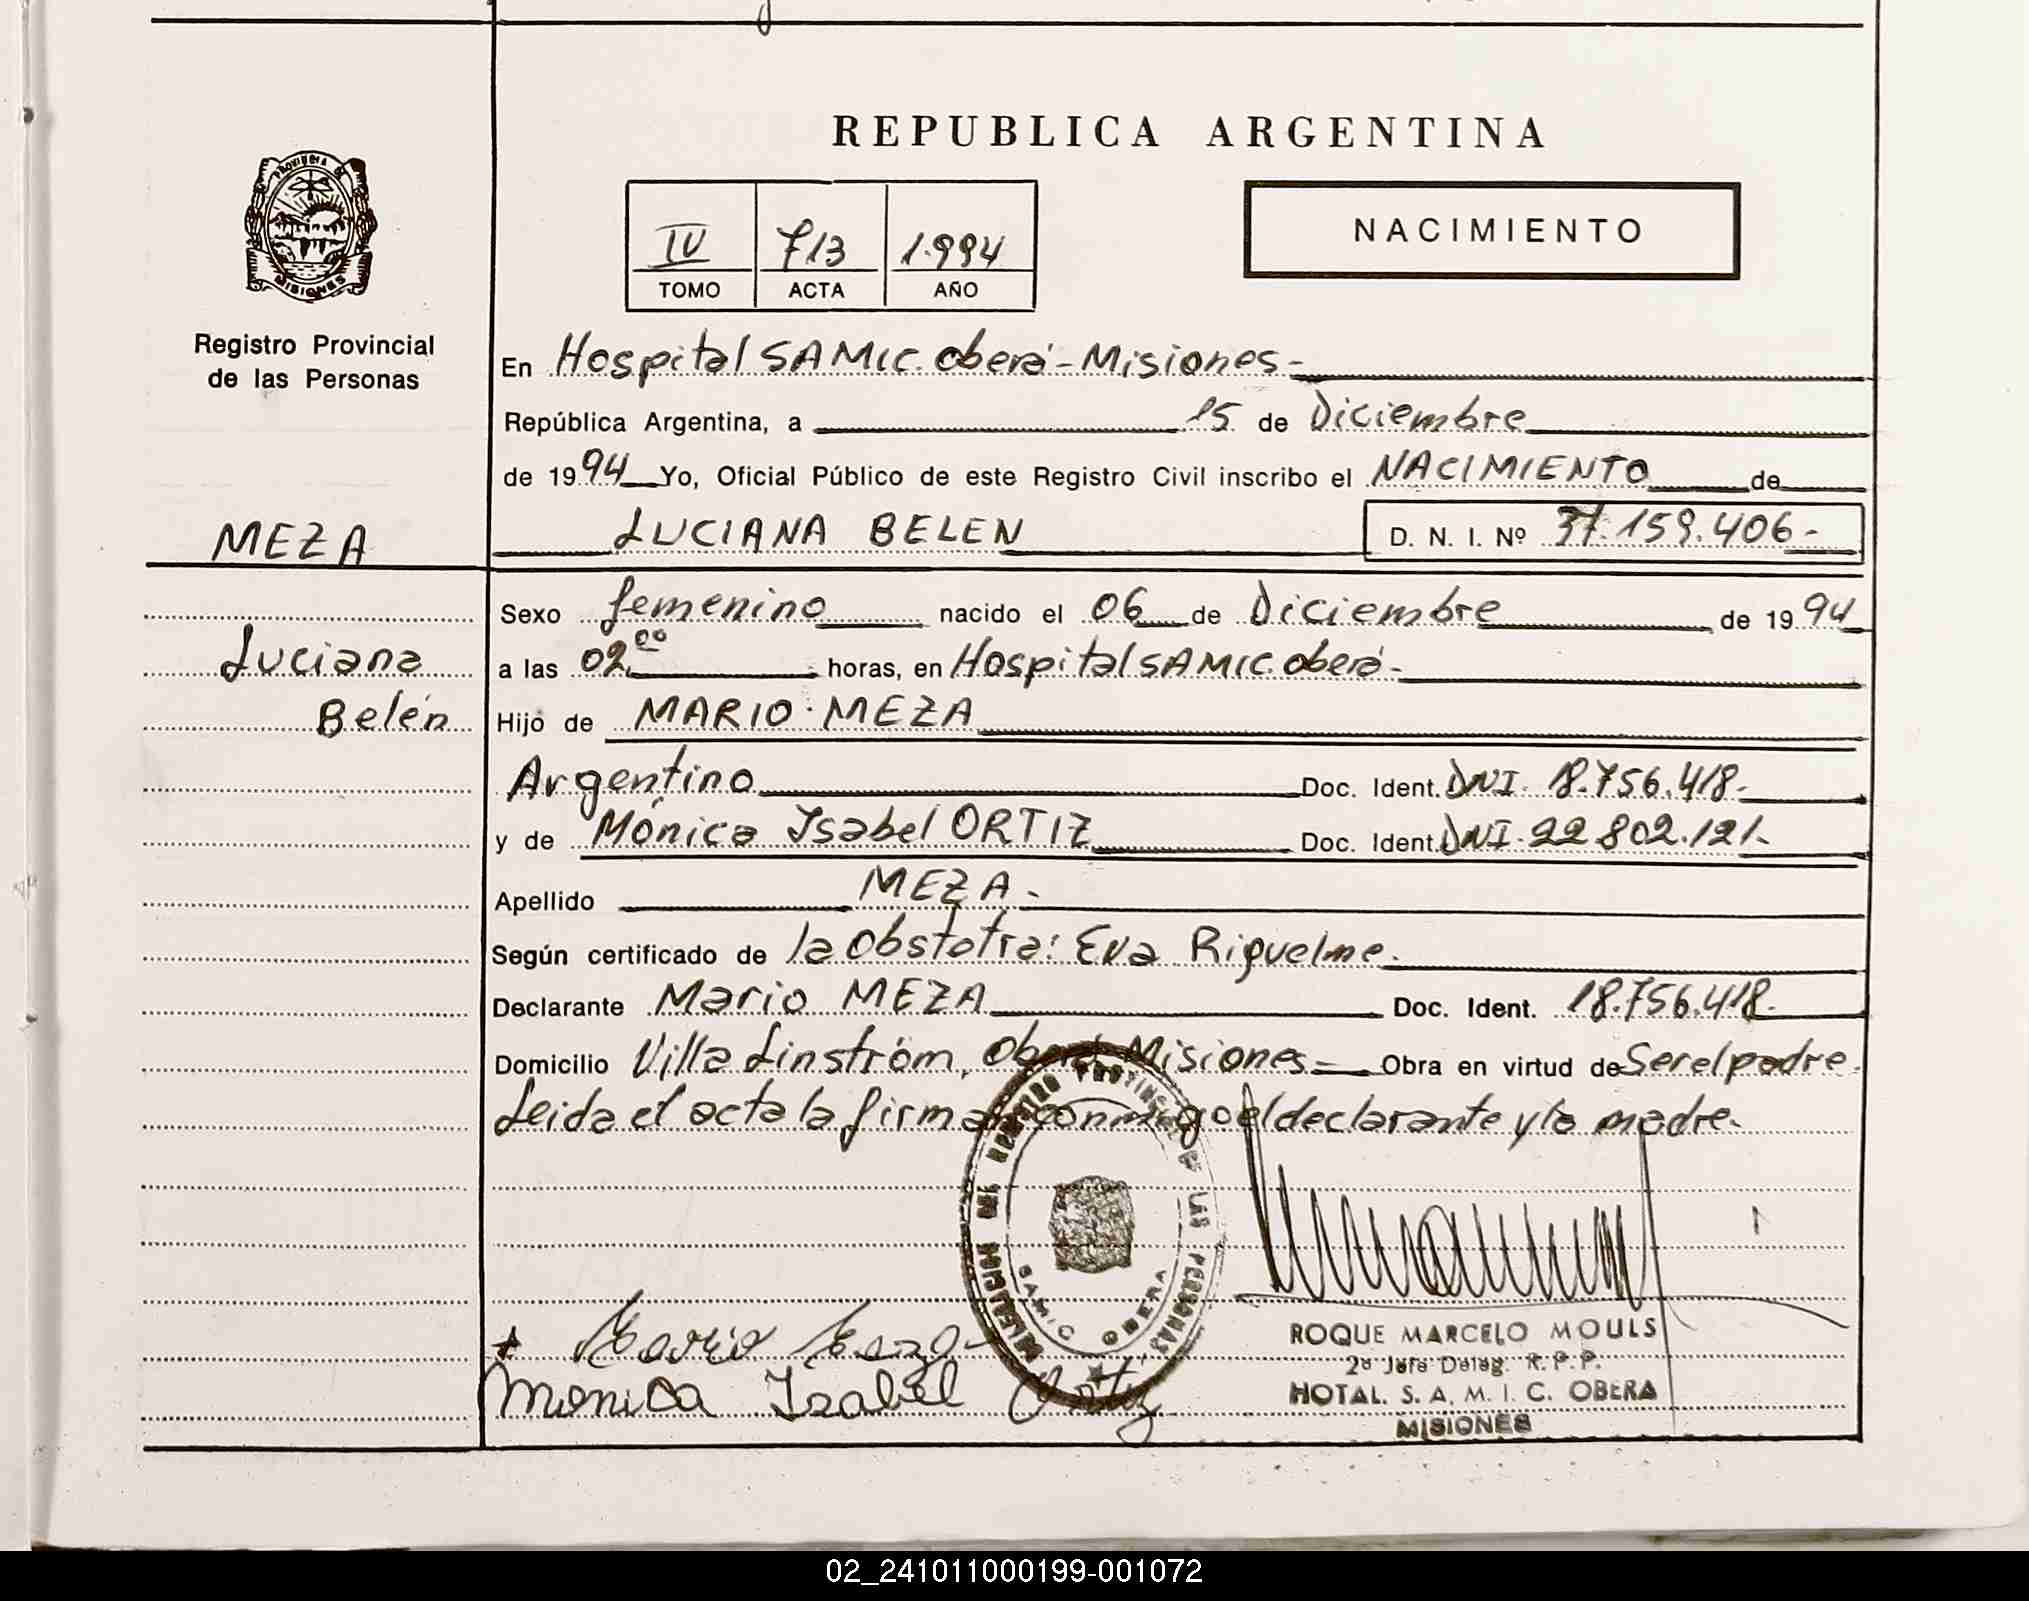 REPUBLICA ARGENTINA
PROVINCIA DE
MISIONES
Registro Provincial
de las Personas
IV 713 1.994
TOMO ACTA AÑO
NACIMIENTO
En Hospital SAMIC. Oberá - Misiones -
República Argentina, a 15 de Diciembre
de 1994 Yo, Oficial Público de este Registro Civil inscribo el NACIMIENTO de
MEZA
LUCIANA BELEN D. N. I. Nº 37.159.406-
Luciana
Belén
Sexo femenino nacido el 06 de Diciembre de 1994
a las 02⁰⁰ horas, en Hospital SAMIC. Oberá -
Hijo de MARIO MEZA
Argentino Doc. Ident. DNI 18.756.418.
y de Mónica Isabel ORTIZ Doc. Ident. DNI. 22 802.121.
Apellido MEZA -
Según certificado de la obstetra: Eva Riquelme.
Declarante Mario MEZA Doc. Ident. 18.756.418.
Domicilio Villa Linström, Oberá Misiones Obra en virtud de Ser el padre.
Leida el acta la firman conmigo el declarante y la madre.
DELEGACION DE REGISTRO PROVINCIAL DE LAS PERSONAS
SAMIC OBERA
Mario Meza
Monica Isabel Ortiz
ROQUE MARCELO MOULS
2º Jefe Deleg. R. P. P.
HOTAL. S. A. M. I. C. OBERA
MISIONES
02_241011000199-001072